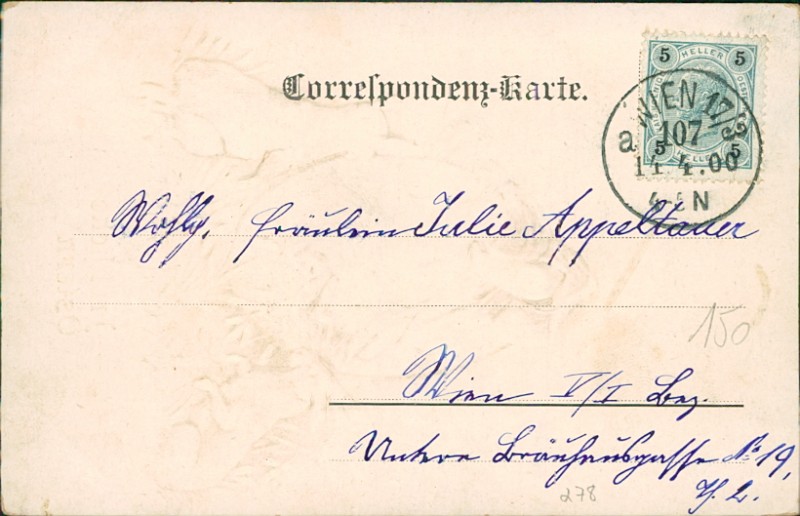 Correspondenz-Karte.
5 HELLER 5
5 HELLER 5
a WIEN 17/3
107
11.4.00
4 N
Wohlg. Fräulein Julie Appeltauer
150
Wien V/I Bez.
Untere Bräuhausgasse No 19,
278